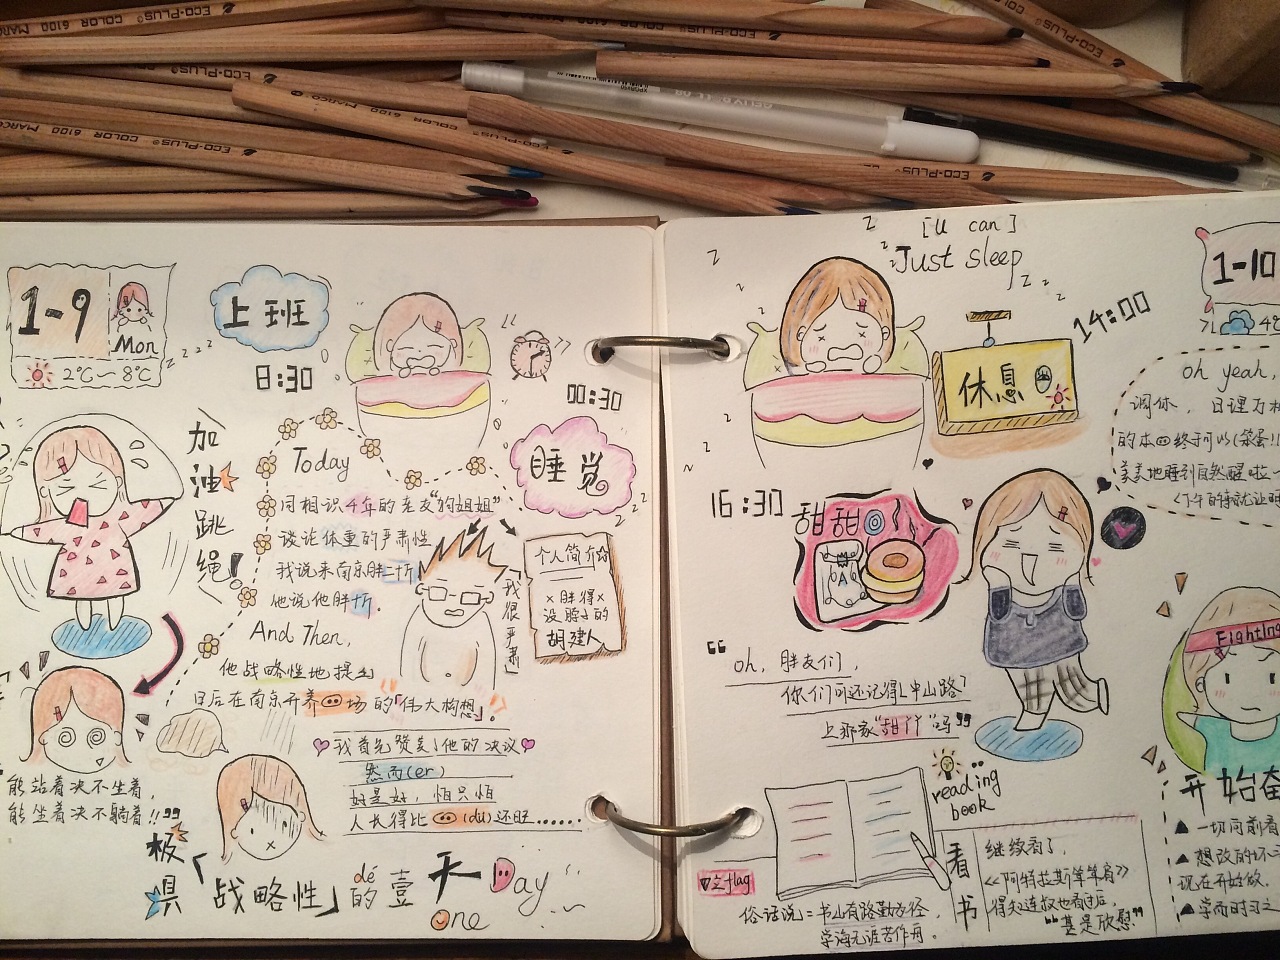 ECO-PLUS
COLOR 6100
MARCO
1-9
Mon
2℃~8℃
上班
8:30
00:30
睡觉
加油跳绳!
Today
同相识4年的老友"狗姐姐"
谈论体重的严肃性
我说来南京胖二斤
他说他胖1斤.
And Then,
他战略性地提出
日后在南京开养场的「伟大构想」。
我很严肃
个人简介
×胖得×
没脖子的
胡建人
我首先赞美了他的决议
然而(er)
好是好,怕只怕
人长得比(du)还旺......
能站着决不坐着,
能坐着决不躺着!!"
极具「战略性」
dé
的壹天 Day
One
[U can]
Just sleep
14:00
休息
16:30
甜甜
"oh,胖友们,
你们可还记得中山路
上那家"甜丫丫"吗"
reading
book
看书
继续看了,
《阿特拉斯耸耸肩》
得知连叔也看过后,
"甚是欣慰"
▽立flag
俗话说:书山有路勤为径
学海无涯苦作舟。
1-10
4℃
oh yeah,
调休,日理万
的本终于可以(笨蛋!!
美美地睡到自然醒啦~
Fighting
开始奋
▲一切向前看
▲想改的坏
现在开始做.
▲学而时习之